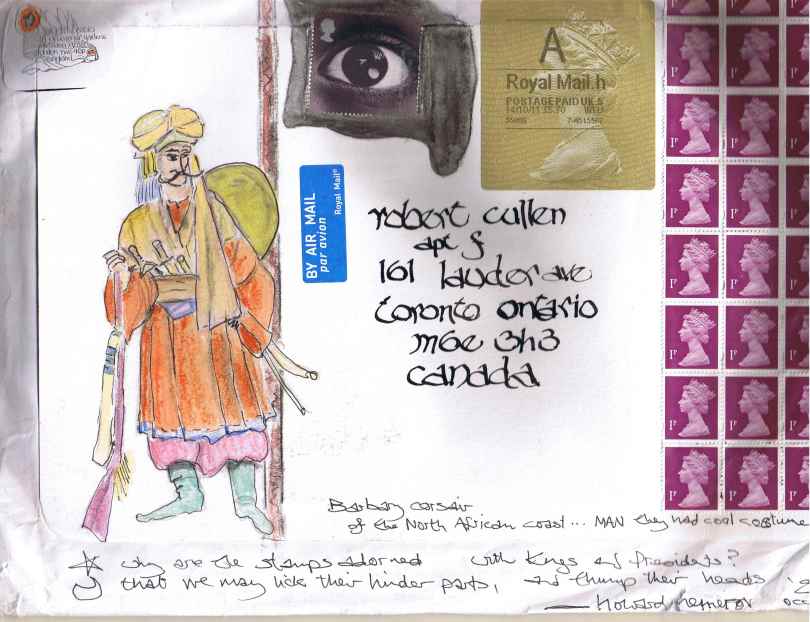 A
Royal Mail.h
POSTAGE PAID UK S
BY AIR MAIL
par avion
Royal Mail®
robert cullen
apt f
161 lauder ave
toronto ontario
m6e 3h3
canada
1P 1P
1P 1P
1P 1P
1P 1P
1P 1P
1P 1P
1P 1P
Barbary corsair
of the North African coast... MAN they had cool costume
why are the stamps adorned with Kings and Presidents?
that we may lick their hinder parts, and thump their heads
— Howard Nemerov